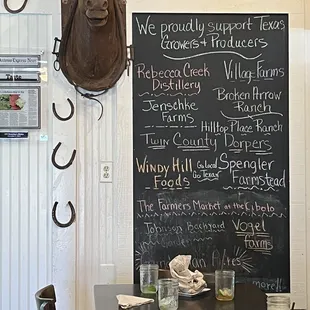 We proudly support Texas
Growers & Producers
Rebecca Creek
Distillery
Village Farms
Jenschke
Farms
Broken Arrow
Ranch
Hilltop Place Ranch
Twin County Dorpers
Windy Hill
Foods
Go Local
Go Texan
Spengler
Farmstead
The Farmers Market at the Cibolo
Johnson Backyard
Garden
Vogel
Farms
Acres
more!!